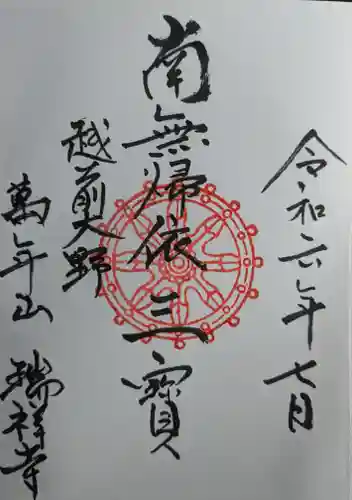 令和六年七月
南無帰依三寶
越前大野
萬年山 瑞祥寺